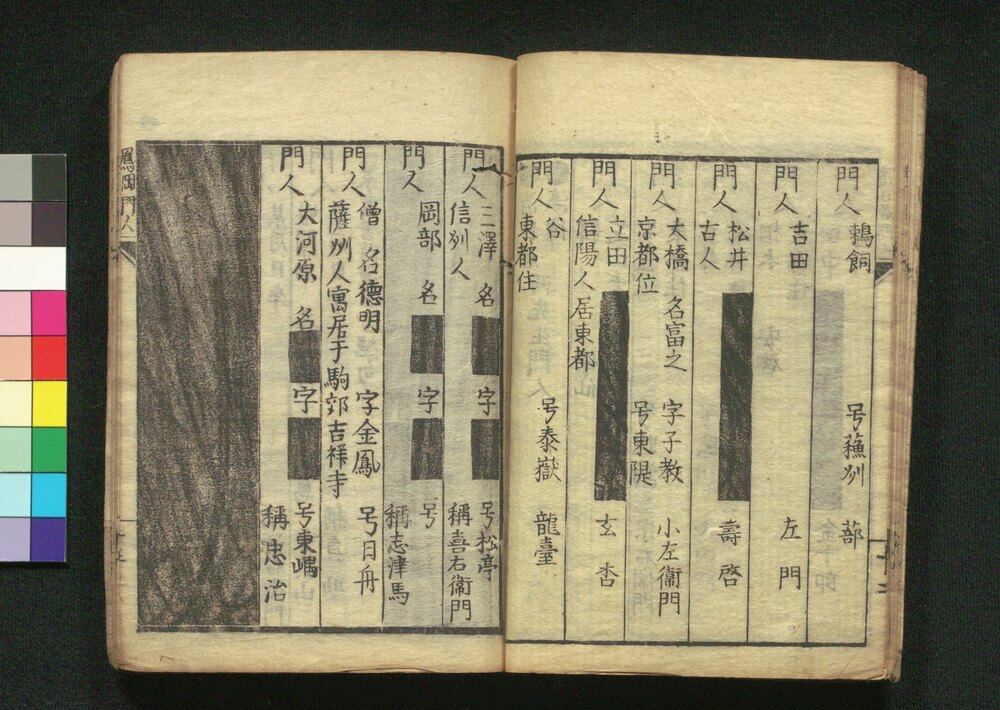 門人 鵜飼 号蘓州 蔀
門人 吉田 左門
門人 松井 壽啓
古人
門人 大橋 名富之 字子教 小左衞門
京都位 号東隄
門人 立田 玄杏
信陽人居東都
門人 谷 号泰嶽 龍臺
東都住
門人 三澤 名 字 号松亭
信州人 稱喜右衞門
門人 岡部 名 字 号
稱志津馬
門人 僧 名德明 字金鳳 号日舟
薩州人寓居于駒郊吉祥寺
門人 大河原 名 字 号東嵎
稱忠治
鳳岡門人